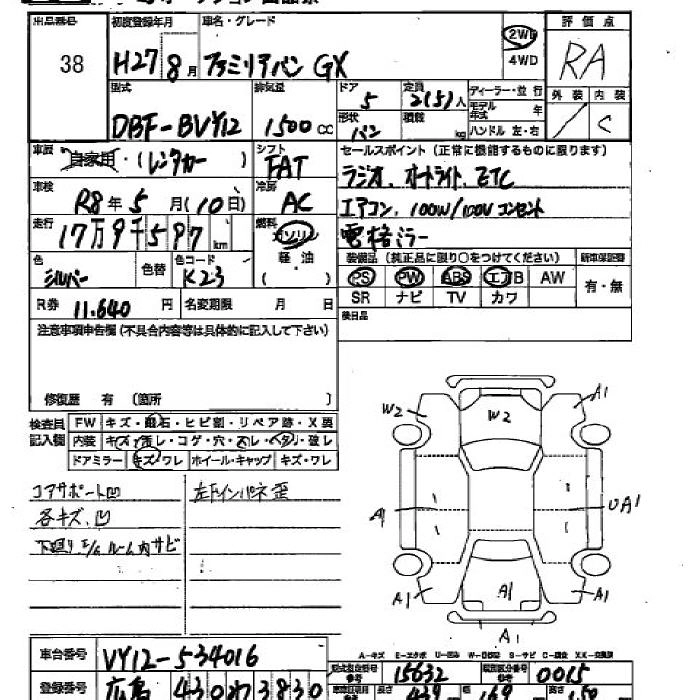 出品番号 初度登録年月 車名・グレード 評価点
38 H27 8月 ファミリアバン GX 2WD 4WD RA
型式 排気量 ドア 定員 ディーラー・並行 外装 内装
DBF-BVY12 1500cc 5 2(5)人 モデル年式 年 C
形状 バン 積載 kg ハンドル 左・右
車歴 自家用・(レンタカー) シフト FAT セールスポイント(正常に機能するものに限ります)
車検 R8年5月(10日) 冷房 AC ラジオ、オートライト、ETC
走行 17万9千597km 燃料 ガソリン 軽油 ( ) エアコン、100W/100Vコンセント
電格ミラー
色 シルバー 色替 色コード K23 装備品(純正品に限り○をつけてください) 新車保証書
PS PW ABS エアB AW 有・無
R券 11,640円 名変期限 月 日 SR ナビ TV カワ
注意事項申告欄(不具合内容等は具体的に記入して下さい) 後日品
修復歴 有 (箇所 )
検査員記入欄 FW キズ・飛石・ヒビ割・リペア跡・X要
内装 キズ・汚レ・コゲ・穴・スレ・ベタ・破レ
ドアミラー キズ・ワレ ホイール・キャップ キズ・ワレ
コアサポート凹 左下インパネ歪
各キズ、凹
下廻り E/Gルーム内サビ
W2 W2 A1
A1 UA1
A1 A1 A1
A1
A-キズ E-エクボ U-凹み S-サビ
車台番号 VY12-534016 型式指定番号 15632 類別区分番号 0015
登録番号 広島 430 わ 3830 長さ 幅 高さ